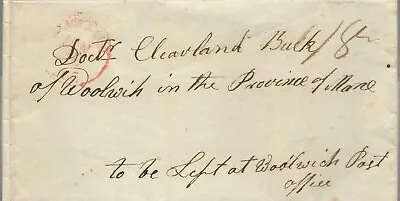 Doctr Cleavland Buck 18
of Woolwih in the Province of Mane
to be Left at Woolwich Post
office